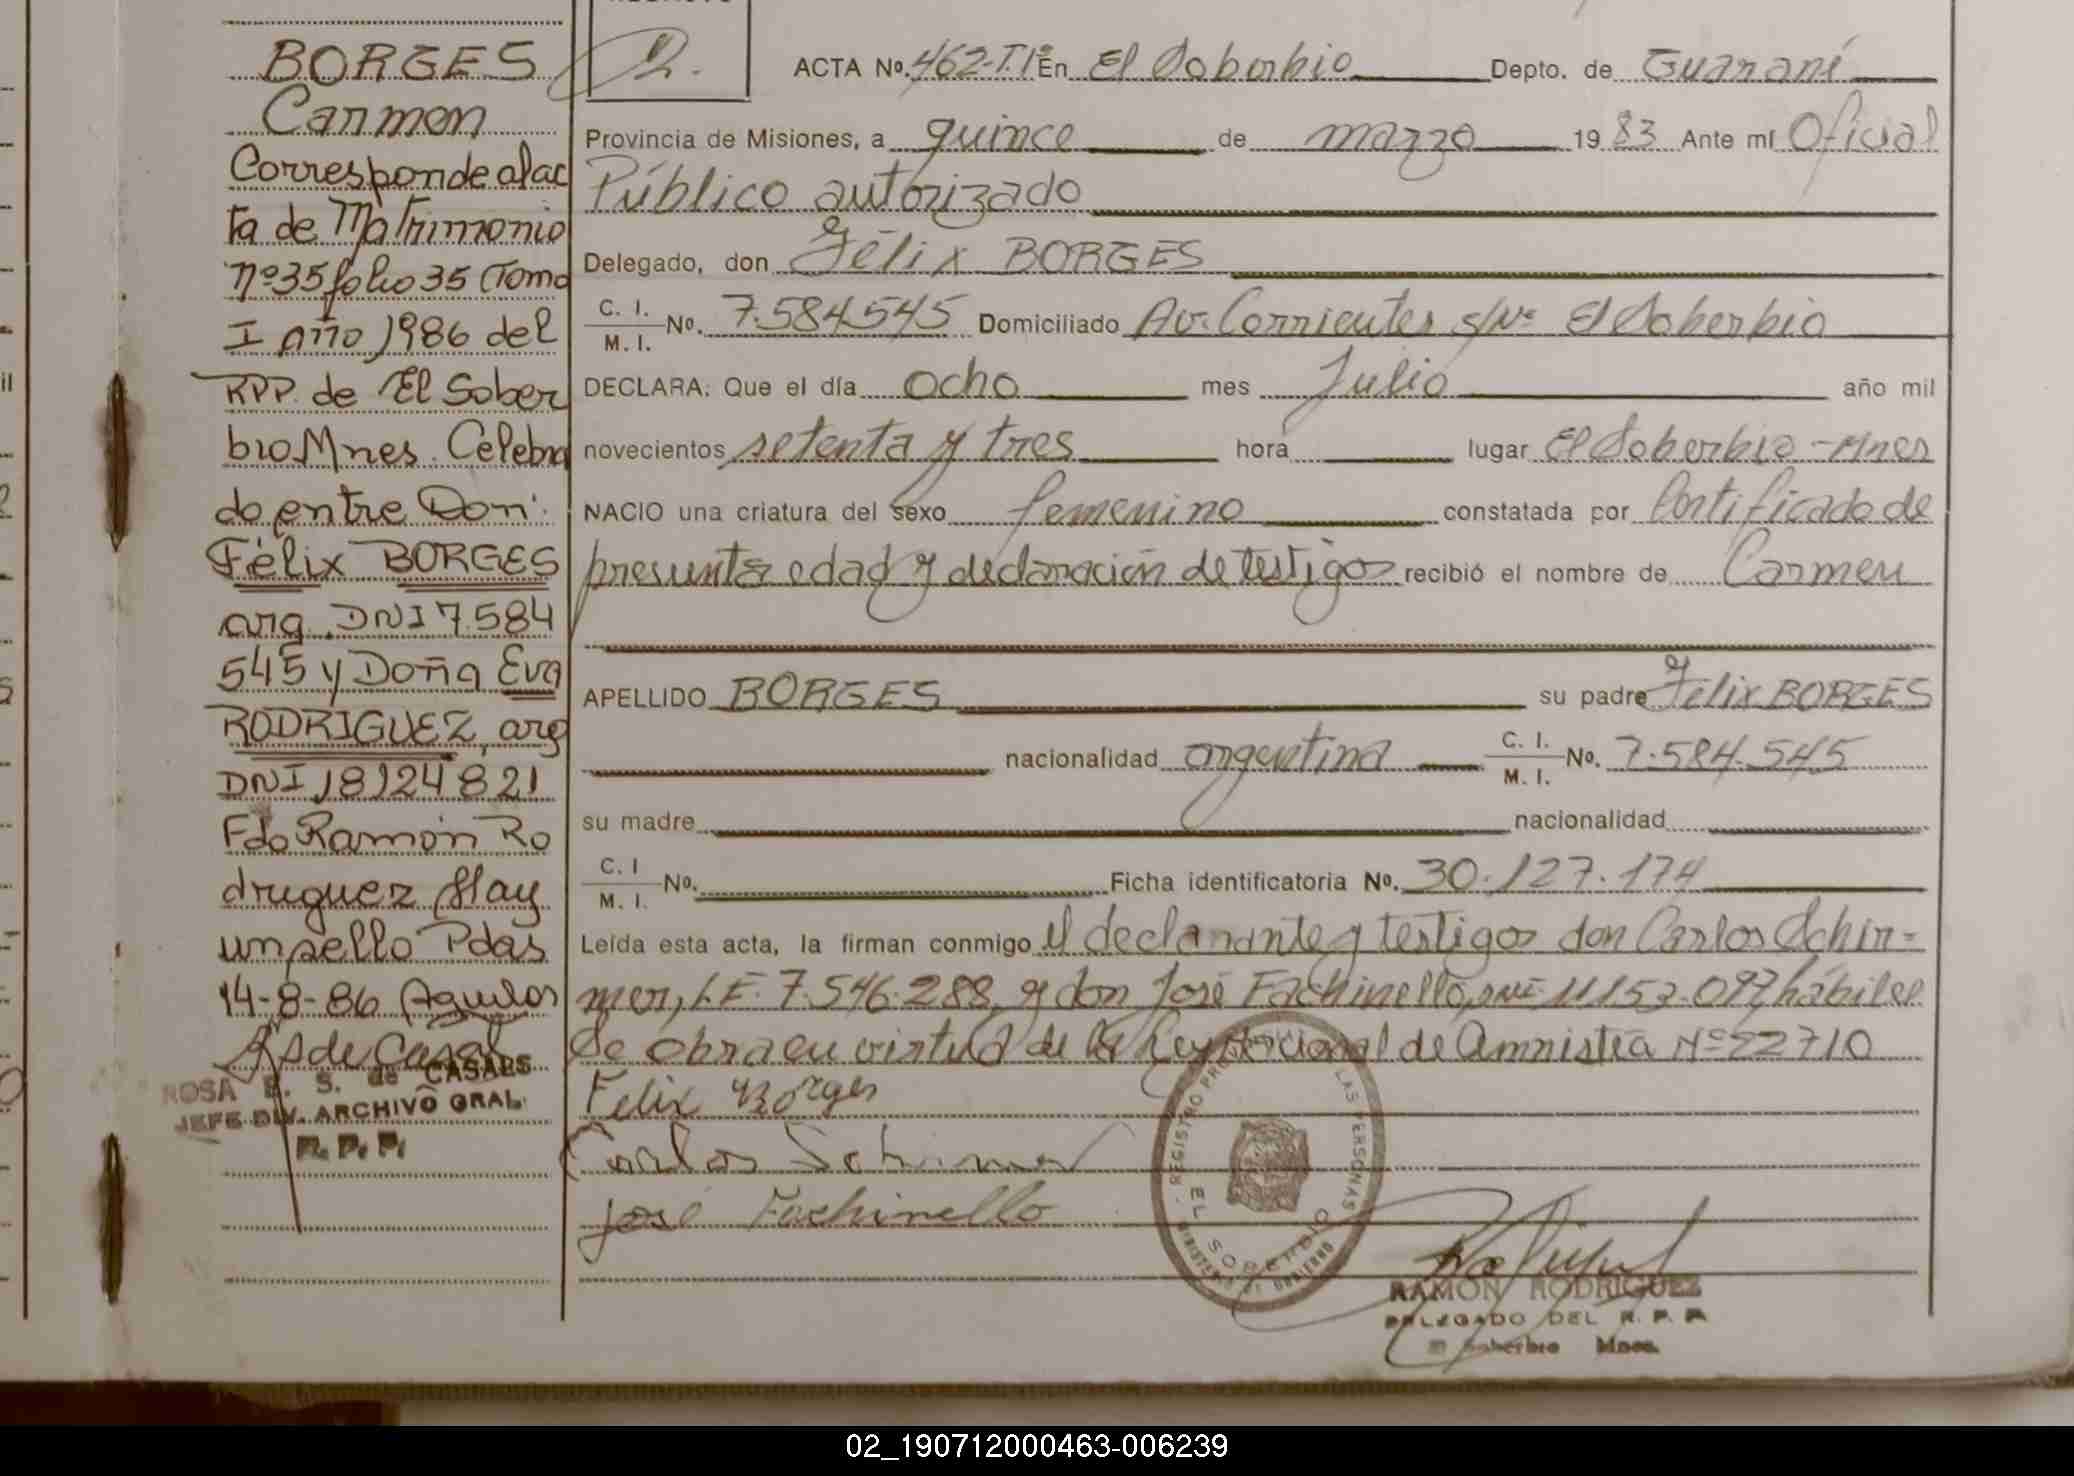 BORGES
Carmen
Corresponde al ac
ta de Matrimonio
Nº 35 folio 35 Tomo
I año 1986 del
RPP. de El Sober
bio Mnes. Celebra
do entre Don:
Félix BORGES
arg. DNI 7.584
545 y Doña Eva
RODRIGUEZ, arg
DNI 18124821
Fdo Ramón Ro
driguez Hay
un sello Pdas
14-8-86
ROSA E. S. de CASALS
JEFE DIV. ARCHIVO GRAL.
R. P. P.
2.
ACTA Nº. 462-T.Iº En El Soberbio Depto. de Guaraní
Provincia de Misiones, a quince de marzo 1983 Ante mí Oficial
Público autorizado
Delegado, don Félix BORGES
C. I.
M. I. Nº. 7.584.545 Domiciliado Av. Corrientes s/Nº El Soberbio
DECLARA: Que el día ocho mes Julio año mil
novecientos setenta y tres hora lugar El Soberbio - Mnes
NACIO una criatura del sexo femenino constatada por Certificado de
presunta edad y declaración de testigos recibió el nombre de Carmen
APELLIDO BORGES su padre Félix BORGES
nacionalidad argentina C. I. M. I. Nº. 7.584.545
su madre nacionalidad
C. I
M. I. Nº. Ficha identificatoria Nº. 30.127.174
Leída esta acta, la firman conmigo el declarante y testigos don Carlos Schir-
mer, L.E. 7.546.288 y don José Fachinello, 11153.097 hábiles
Se obra en virtud de la Ley Nacional de Amnistía Nº 22710
Felix Borges
Carlos Schirmer
José Fachinello
REGISTRO PROVINCIAL DE LAS PERSONAS
EL SOBERBIO
MINISTERIO DE GOBIERNO
RAMON RODRIGUEZ
DELEGADO DEL R. P. P.
El Soberbio Mnes.
02_190712000463-006239